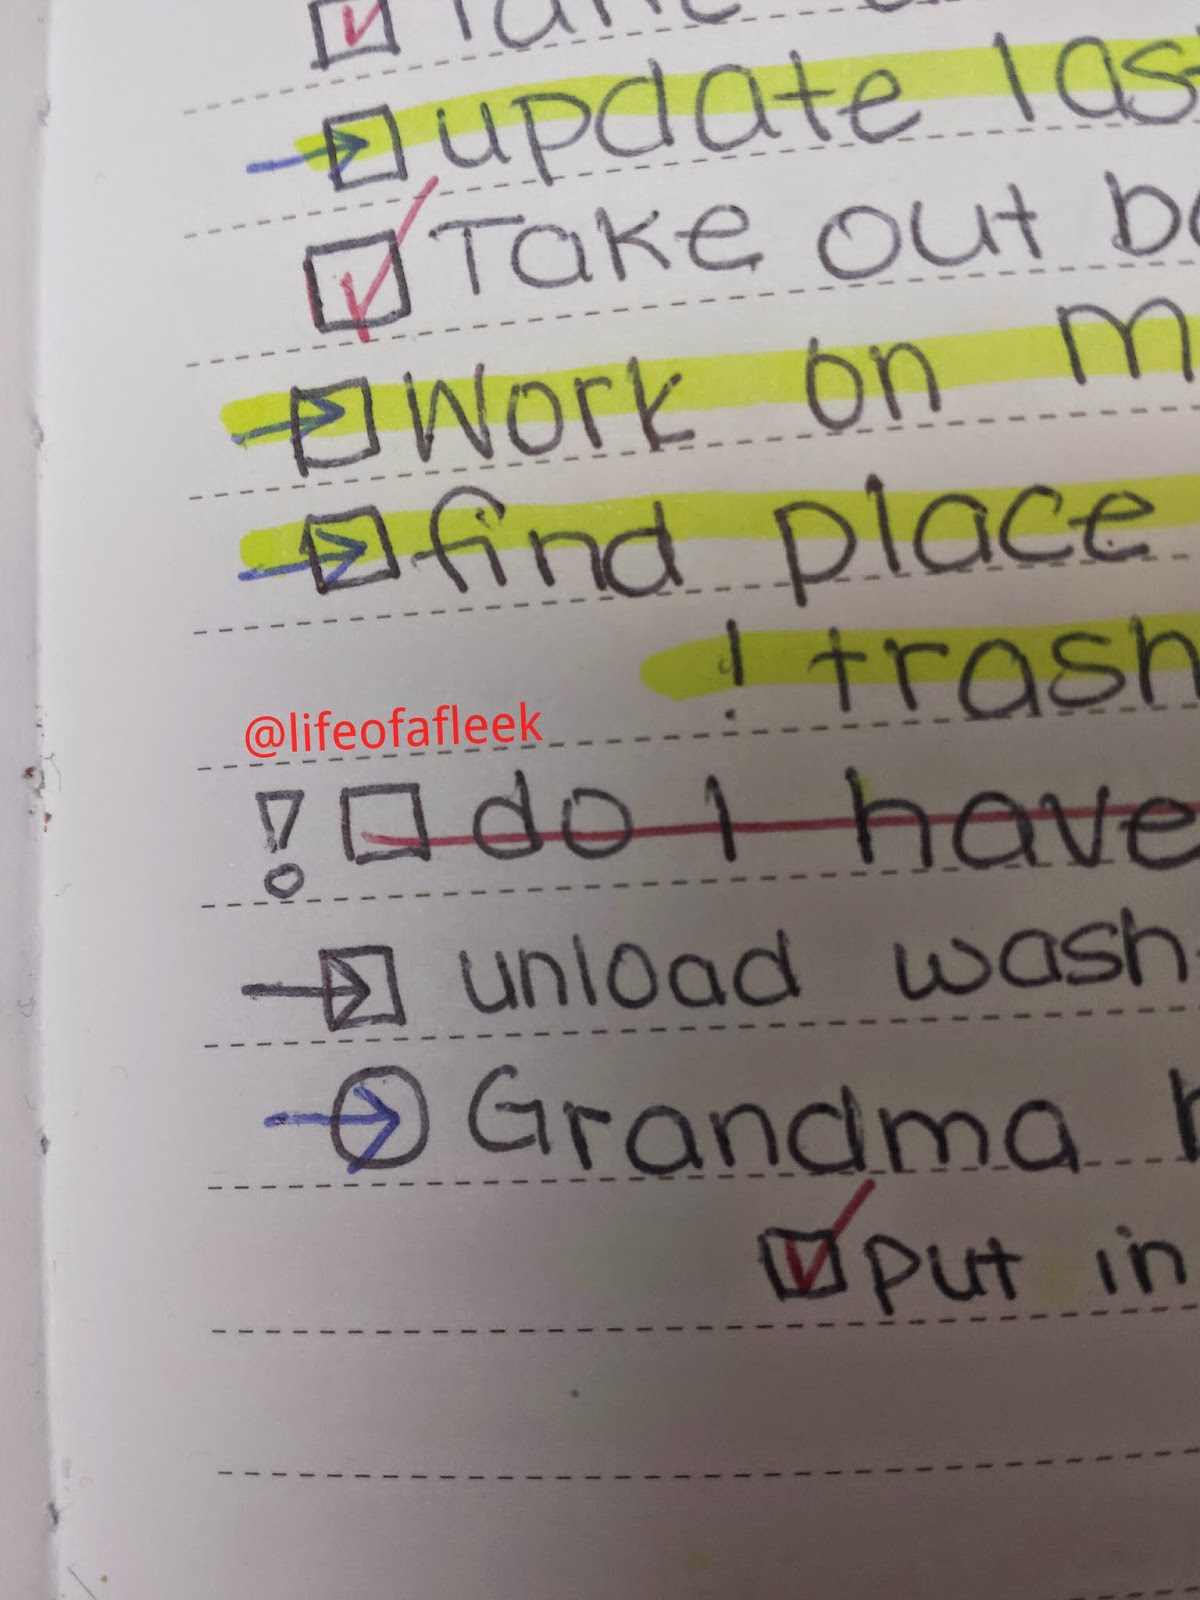 Take
update las
Take out
Work on
find place
! trash
@lifeofafleek
! do I have
unload wash
Grandma
put in